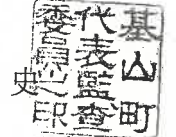 基山町
代表監査
委員之印
史